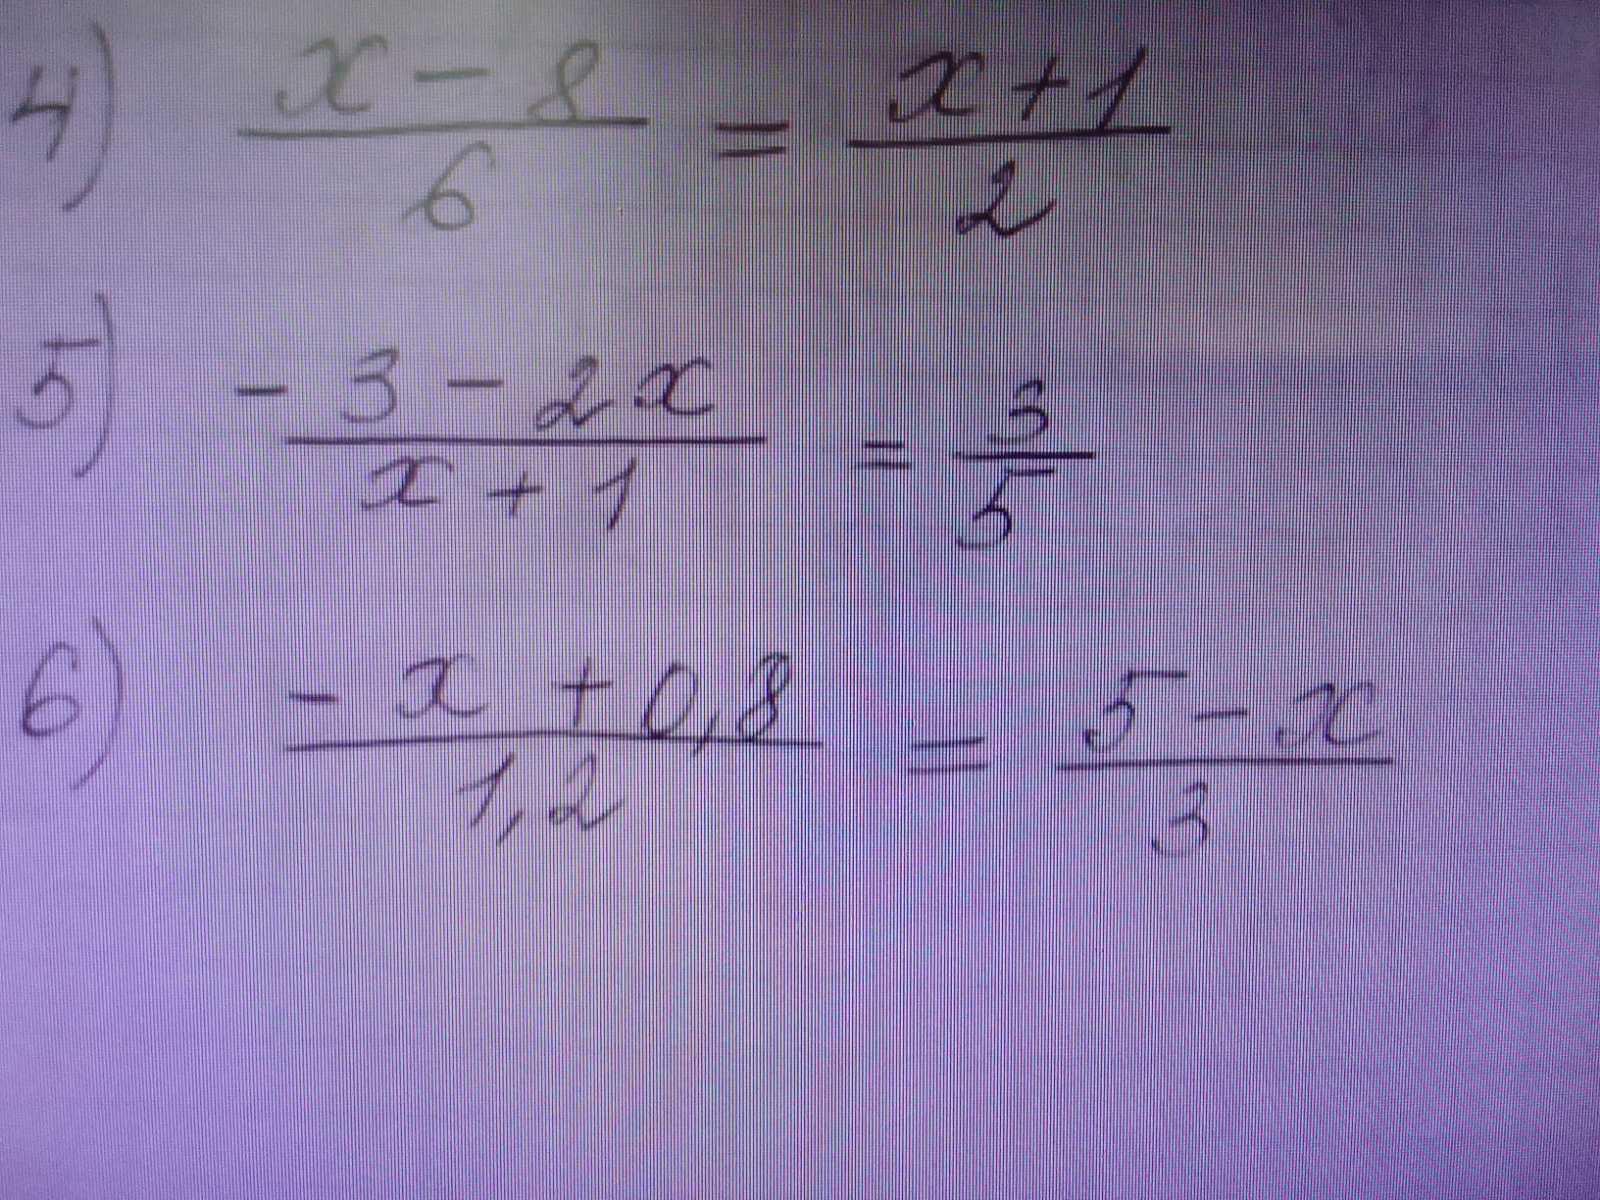 4) x - 8 / 6 = x + 1 / 2
5) - 3 - 2x / x + 1 = 3 / 5
6) - x + 0,8 / 1,2 = 5 - x / 3